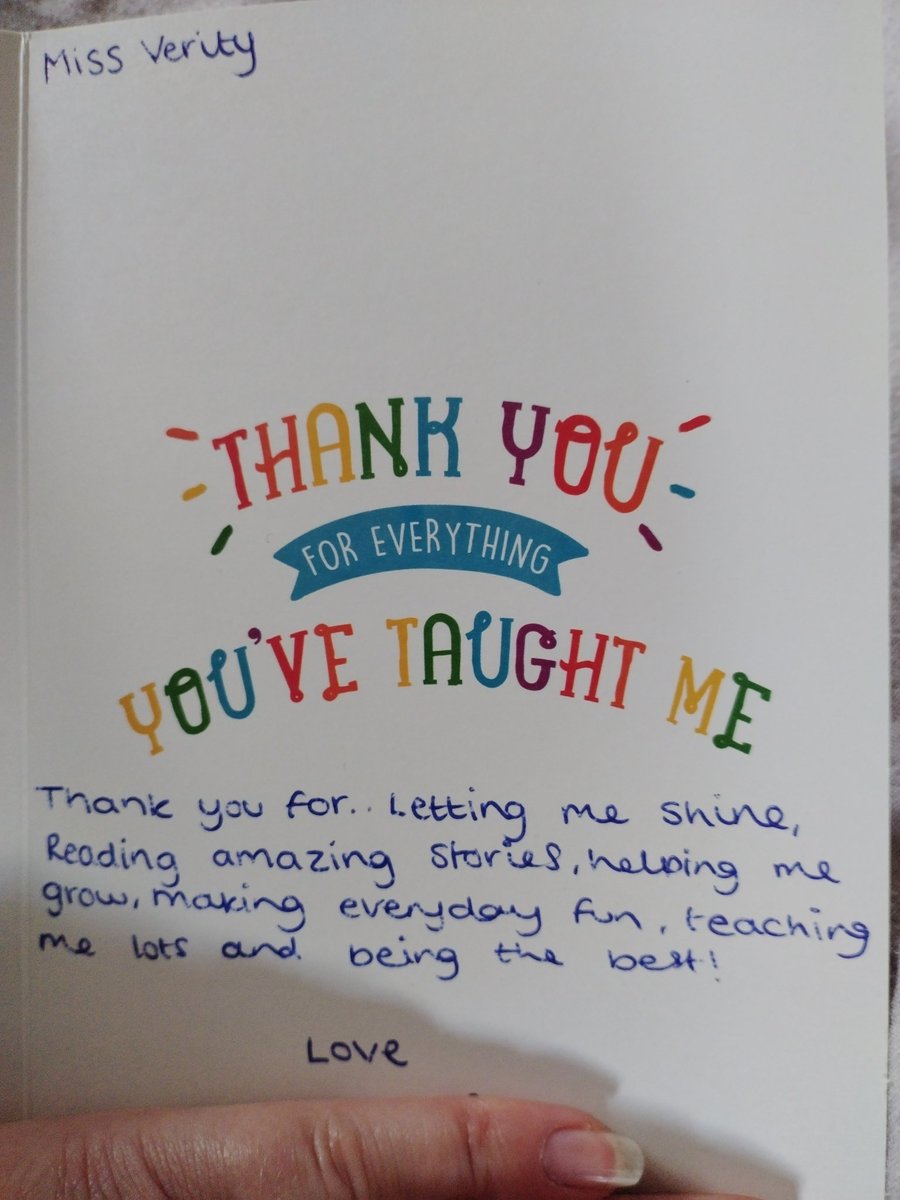 Miss Verity
THANK YOU
FOR EVERYTHING
YOU'VE TAUGHT ME
Thank you for.. Letting me shine,
Reading amazing stories, helping me
grow, making everyday fun, teaching
me lots and being the best!
Love